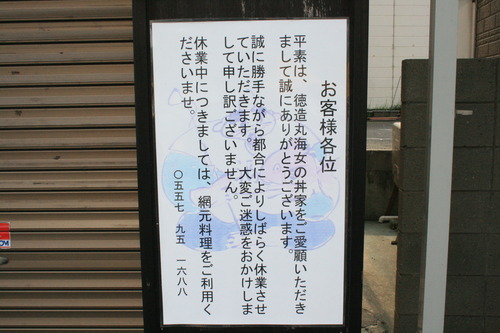 お客様各位
平素は、徳造丸海女の丼家をご愛顧いただき
まして誠にありがとうございます。
誠に勝手ながら都合によりしばらく休業させ
ていただきます。大変ご迷惑をおかけしま
して申し訳ございません。
休業中につきましては、網元料理をご利用く
ださいませ。
〇五五七 九五 一六八八